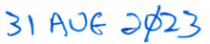 31 AUG 2023